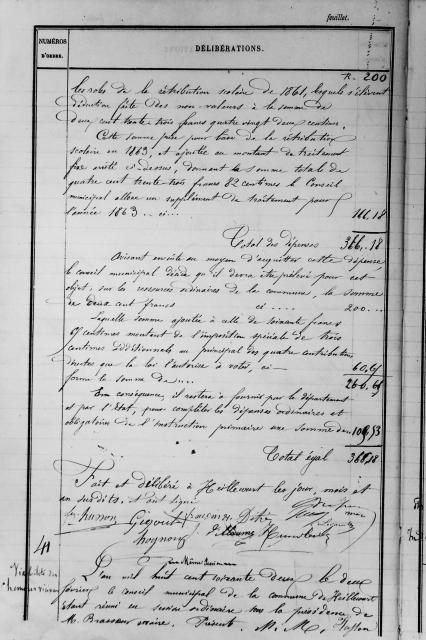 feuillet.
NUMÉROS
D'ORDRE.
DÉLIBÉRATIONS.
R. 200
les roles de la rétribution scolaire de 1861, lesquels s'élèvent
déduction faite des non valeurs à la somme de
deux cent trente trois francs quatre vingt deux centimes.
Cette somme prise pour base de la rétribution
scolaire en 1863, et ajoutée au montant du traitement
fixe arrêté ci-dessus, donnant la somme totale de
quatre cent trente trois francs 82 centimes le Conseil
municipal alloue un supplément de traitement pour
l'année 1863 .. ci... 166,18
Total des dépenses 366,18
Avisant ensuite au moyen d'acquitter cette dépense
le conseil municipal décide qu'il devra être prélevé pour cet
objet, sur les ressources ordinaires de la commune, la somme
de deux cent francs ci .... 200 ...
Laquelle somme ajoutée à celle de soixante francs
65 centimes montant de l'imposition spéciale de trois
centimes additionnels au principal des quatre contributions
directes que la loi l'autorise à voter, ci — 60,65
forme la somme de .... 260,65
En conséquence, il restera à fournir par le département
et par l'État, pour compléter les dépenses ordinaires et
obligatoires de l'instruction primaire une somme de 105,53
Total égal 366,18
Fait et délibéré à Heillecourt les jour, mois et
an susdits, et ont signé
41
L'an mil huit cent soixante deux le deux
février le conseil municipal de la commune de Heillecourt
étant réuni en session ordinaire sous la présidence de
M. Brasseur maire. Présents. M. M.